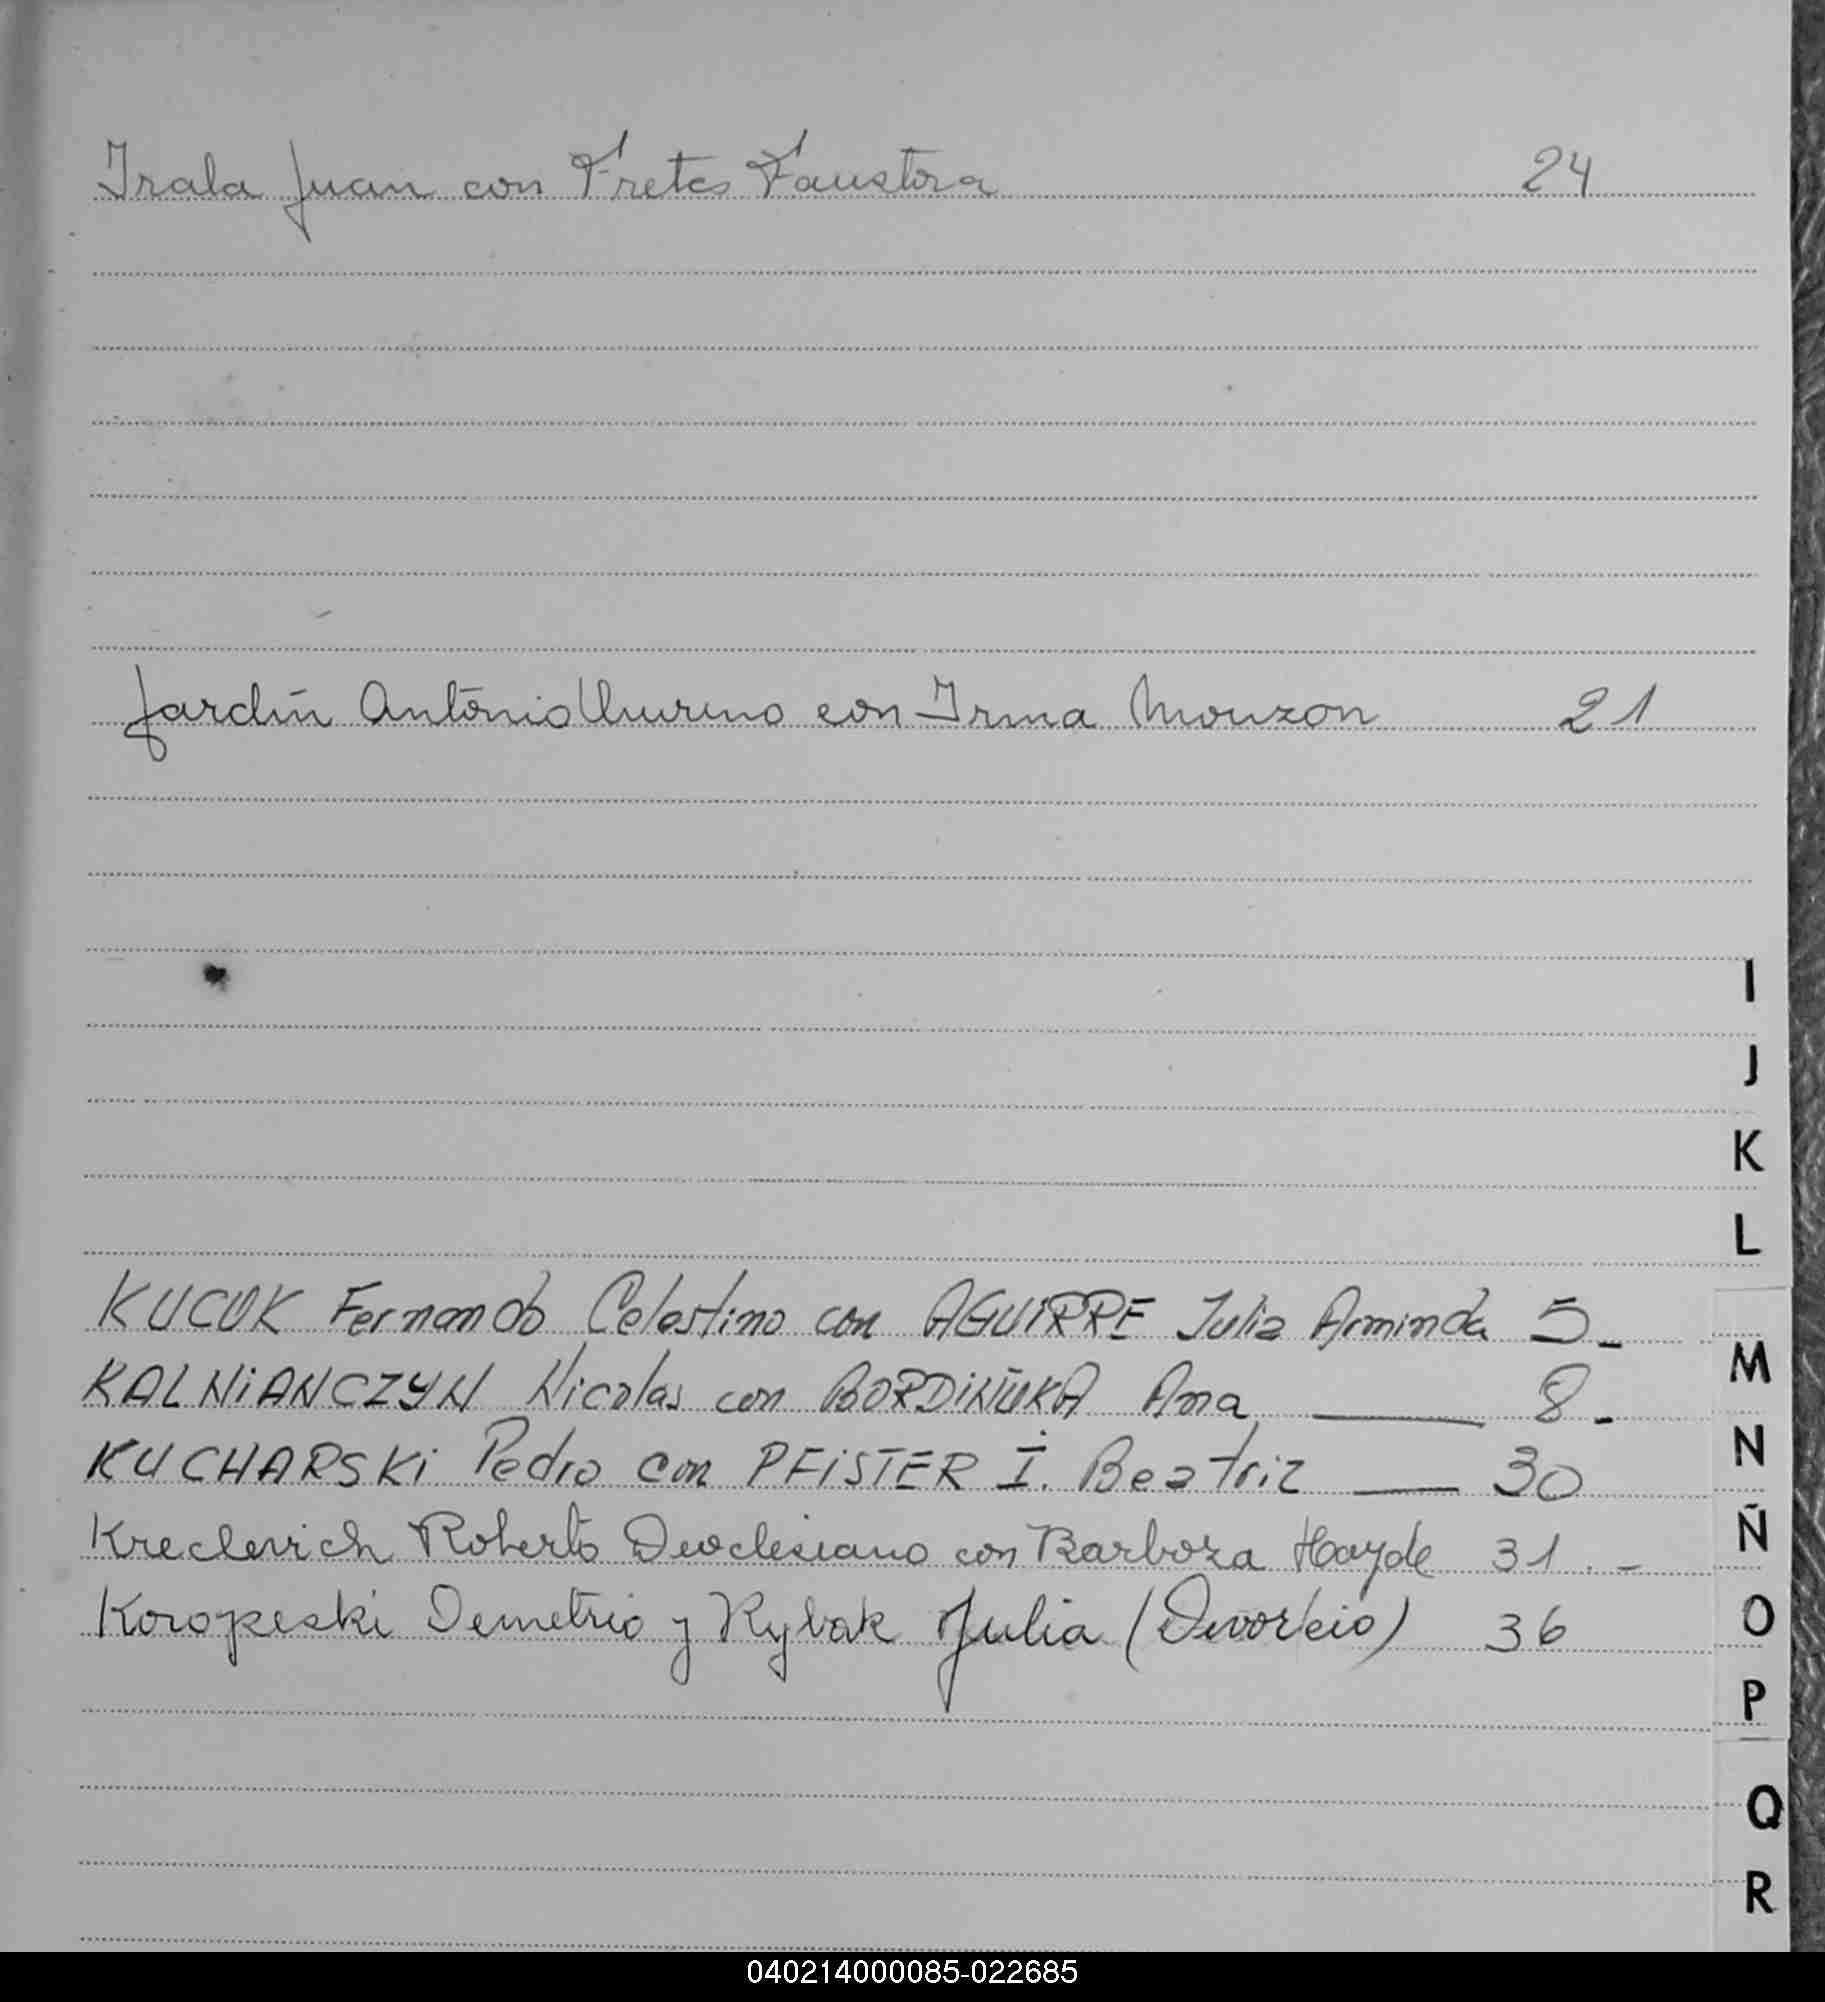 Irala Juan con Fretes Faustina 24
Jardín Antonio con Irma Monzon 21
I
J
K
L
KUCUK Fernando Celestino con AGUIRRE Julia Arminda 5_
KALNIANCZYN Nicolas con BORDINUKA Ana ___ 8_
M
KUCHARSKi Pedro con PFISTER I. Beatriz ___ 30
N
Kreclevich Roberto Deoclesiano con Barboza Hayde 31 . _
Ñ
Koropeski Demetrio y Rybak Julia (Divorcio) 36
O
P
Q
R
040214000085-022685